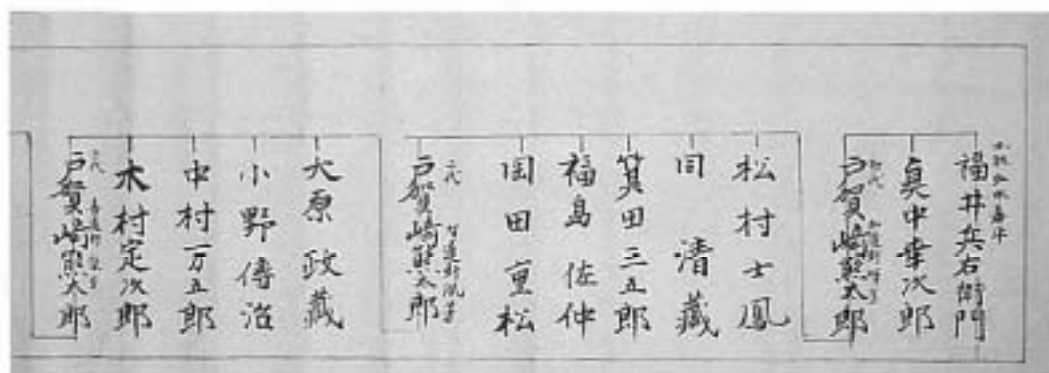 福井兵右衛門
奥中幸次郎
戸賀崎熊太郎
松村士鳳
同 清藏
箕田三五郎
福島佐仲
岡田重松
二代
戸賀﨑熊太郎
大原政藏
小野傳治
中村万五郎
木村定次郎
戸賀﨑熊太郎